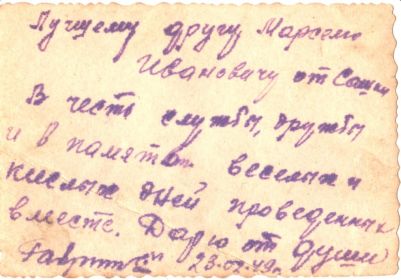 Лучшему другу Марселю
Ивановичу от Саши
В честь службы, дружбы
и в память веселых и
кислых дней проведенных
вместе. Дарю от души
23.02.49г.